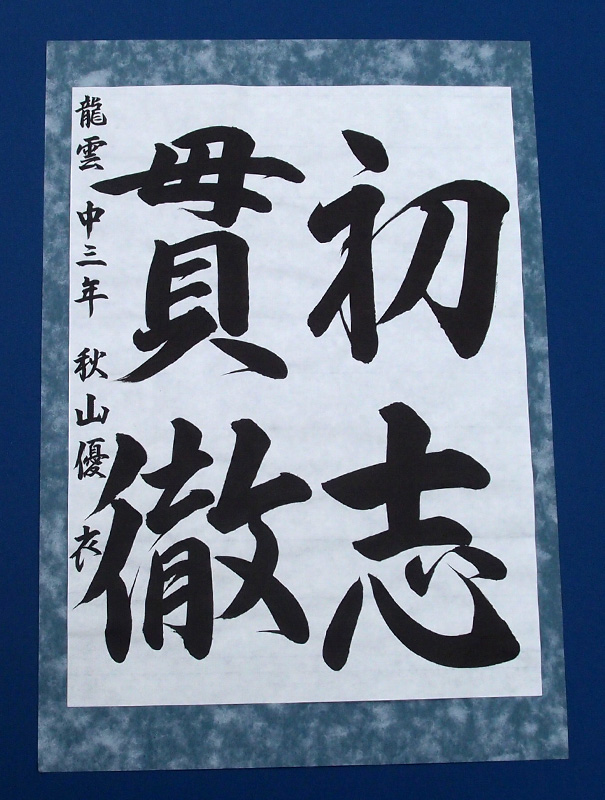 初志
貫徹
龍雲 中三年 秋山優衣